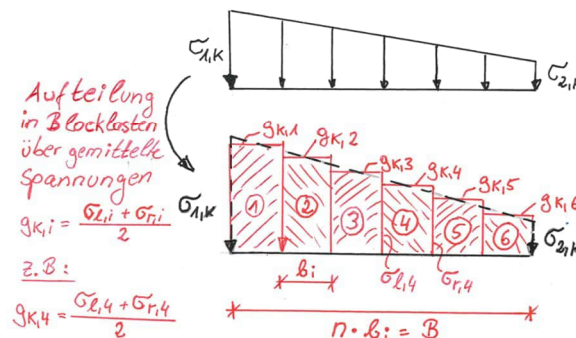 σ1,K
σ2,K
Aufteilung
in Blocklasten
über gemittelte
Spannungen
gK,i = σl,i + σr,i / 2
z.B:
gK,4 = σl,4 + σr,4 / 2
gK,1
gK,2
gK,3
gK,4
gK,5
gK,6
σ1,K
① ② ③ ④ ⑤ ⑥
σ2,K
bi
σl,4
σr,4
n · bi = B